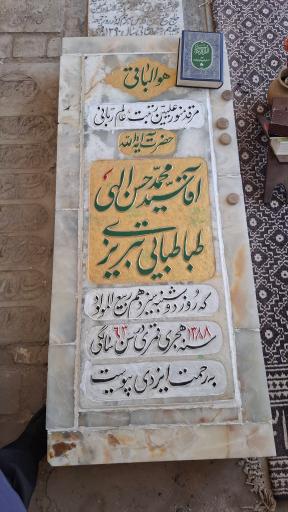 هوالباقی
مرقد منور علیین رتبت عالم ربانی
حضرت آیة الله
آقا سید محمد حسن الهی
طباطبایی تبریزی
که روز دوشنبه سیزدهم ربیع المولود
سنه ۱۳۸۸ هجری قمری در سن ۶۳ سالگی
به رحمت ایزدی پیوست